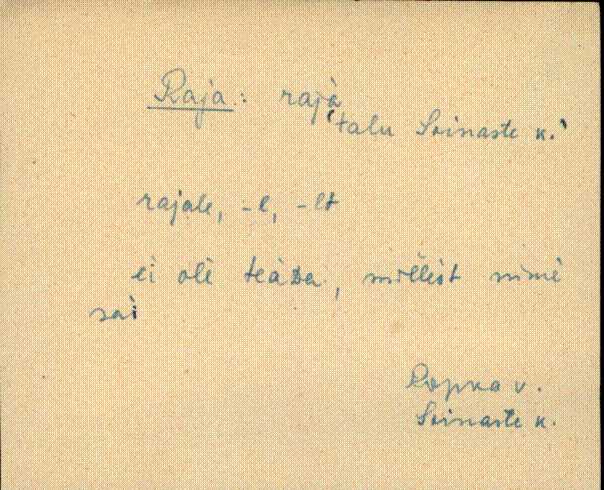 Raja: rajà
talu Soinaste k.
rajale, -l, -lt
ei olè teàDa, millest nimè
sai
Ropka v.
Soinaste k.